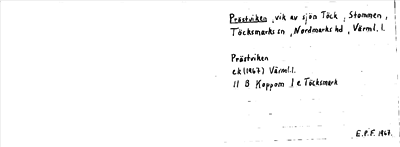 Prästviken, vik av sjön Töck, Stommen,
Töcksmarks sn, Nordmarks hd, Värml. l.
Prästviken
ek (1967) Värml. l.
11 B Koppom 1 e Töcksmark
E.P.F. 1967.